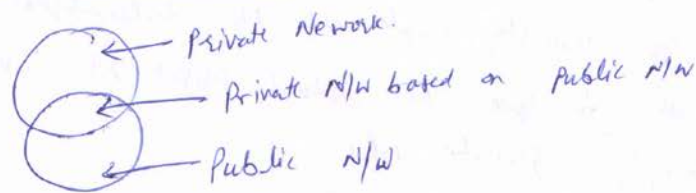 Private Nework.
Private N/W based on Public N/W
Public N/W